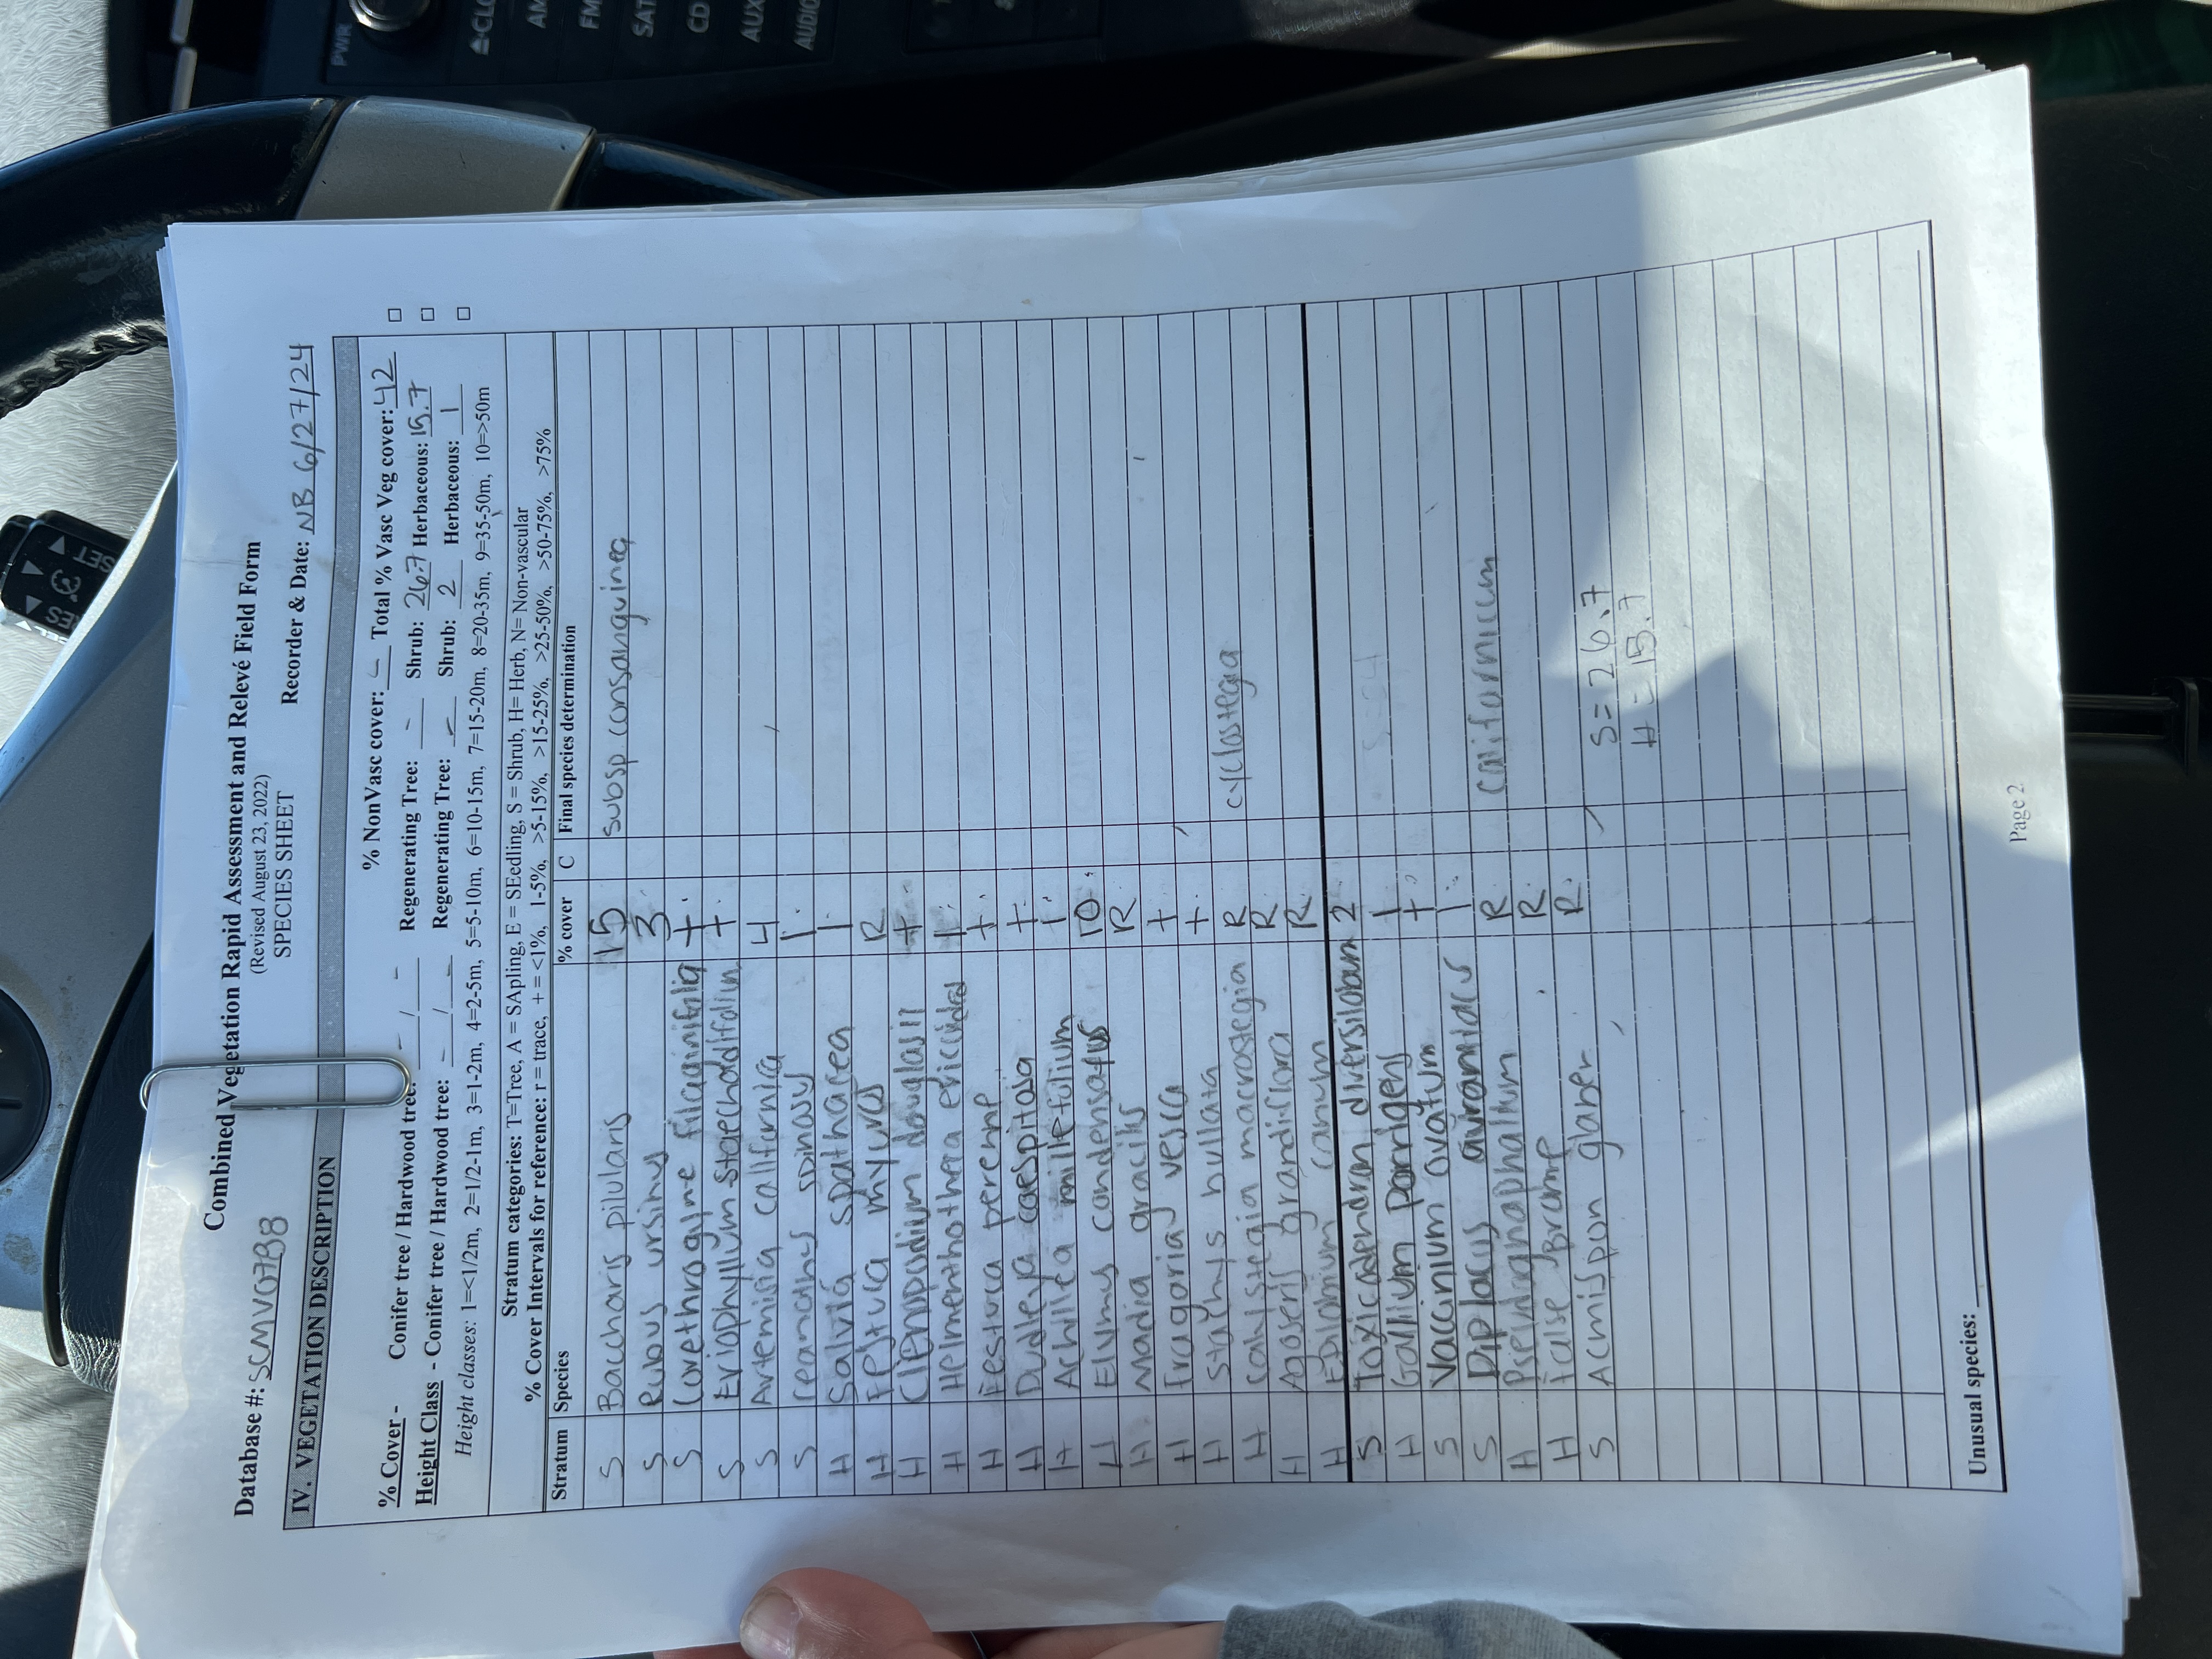 PWR
CLO
AM
FM
SAT
CD
AUX
AUDIO
RES
SET
Combined Vegetation Rapid Assessment and Relevé Field Form
(Revised August 23, 2022)
SPECIES SHEET
Database #: SCMVG7B8 Recorder & Date: NB 6/27/24
IV. VEGETATION DESCRIPTION
% NonVasc cover: - Total % Vasc Veg cover: 42
% Cover - Conifer tree / Hardwood tree: - / - Regenerating Tree: - Shrub: 26.7 Herbaceous: 15.7
Height Class - Conifer tree / Hardwood tree: - / - Regenerating Tree: - Shrub: 2 Herbaceous: 1
Height classes: 1=<1/2m, 2=1/2-1m, 3=1-2m, 4=2-5m, 5=5-10m, 6=10-15m, 7=15-20m, 8=20-35m, 9=35-50m, 10=>50m
Stratum categories: T=Tree, A = SApling, E = SEedling, S = Shrub, H= Herb, N= Non-vascular
% Cover Intervals for reference: r = trace, + = <1%, 1-5%, >5-15%, >15-25%, >25-50%, >50-75%, >75%
Stratum Species % cover C Final species determination
S Baccharis pilularis 15 subsp. consanguinea
S Rubus ursinus 3
S Corethrogalne filaginifolia +
S Eriophyllum staechadifolium +
S Artemisia californica 4
S Ceanothus spinosus 1
H Salvia spathacea 1
H Festuca myuros R
H Clenopodium douglasii +
H Helmenthotheca 1
H Festuca perenne +
H Dudleya caespitosa +
H Achillea millefolium 1
H Elymus condensatus 10
H Madia gracilis R
H Fragaria vesca +
H Stachys bullata +
H Calystegia macrostegia R cyclostegia
H Agoseris grandiflora R
H Epilobium canum R
S Toxicodendron diversilobum 2
H Gallium porrigens 1
S Vaccinium ovatum +
S Diplacus aurantiacus 1
H Pseudognaphallum R californicum
H False Brome R
S Acmispon glaber R
S = 26.7
H = 15.7
Unusual species:
Page 2